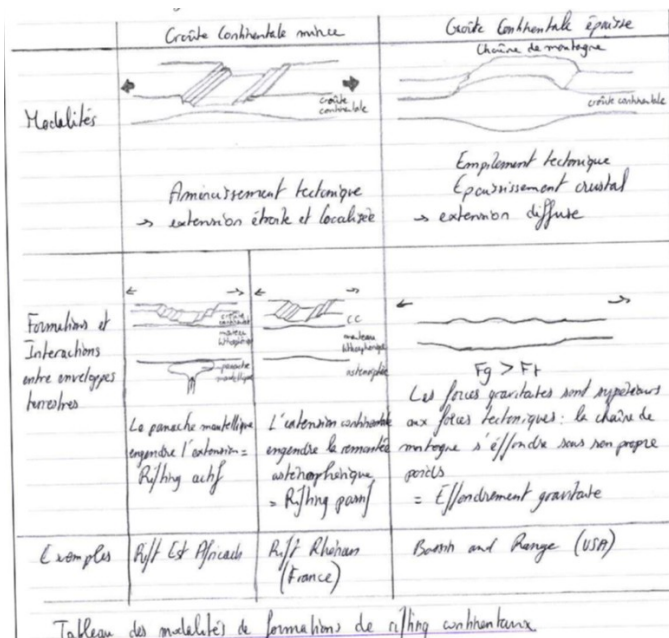 Croûte Continentale mince
Croûte Continentale épaisse
Modalités
croûte
continentale
Chaîne de montagne
croûte continentale
Amincissement tectonique
→ extension étroite et localisée
Empilement tectonique
Epaississement crustal
→ extension diffuse
Formations et
Interactions
entre enveloppes
terrestres
croûte
continentale
manteau
lithosphérique
panache
mantellique
Le panache mantellique
engendre l'extension =
Rifting actif
CC
manteau
lithosphérique
asthénosphère
L'extension continentale
engendre la remontée
asthénosphérique
= Rifting passif
Fg > Ft
Les forces gravitaires sont supérieurs
aux forces tectoniques : la chaîne de
montagne s'éffondre sous son propre
poids
= Effondrement gravitaire
Exemples
Rift Est Africain
Rift Rhénan
(France)
Bassin and Range (USA)
Tableau des modalités de formations de rifting continentaux